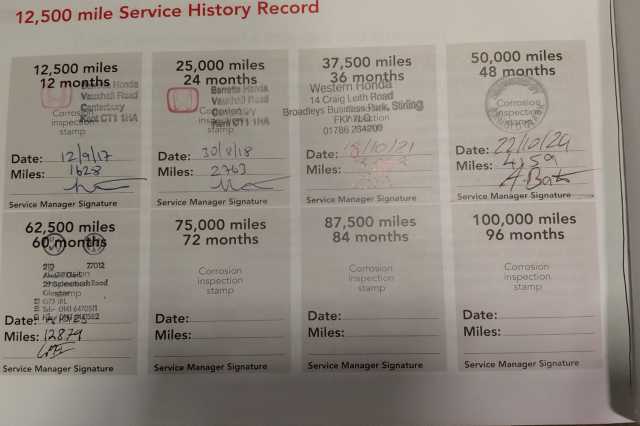 12,500 mile Service History Record
12,500 miles
12 months
Barretts Honda
Vauxhall Road
Canterbury
Kent CT1 1HA
Corrosion
inspection
stamp
Date: 12/9/17
Miles: 1628
Service Manager Signature
25,000 miles
24 months
Barretts Honda
Vauxhall Road
Canterbury
Kent CT1 1HA
Corrosion
inspection
stamp
Date: 30/8/18
Miles: 2763
Service Manager Signature
37,500 miles
36 months
Western Honda
14 Craig Leith Road
Broadleys Business Park, Stirling
FK7 7LQ
01786
Corrosion
inspection
stamp
Date: 18/10/21
Miles:
Service Manager Signature
50,000 miles
48 months
Corrosion
inspection
stamp
Date: 22/10/24
Miles: 4,59
Service Manager Signature
62,500 miles
60 months
Road
Glasgow
G73 1RL
Date:
Miles: 12879
Service Manager Signature
75,000 miles
72 months
Corrosion
inspection
stamp
Date:
Miles:
Service Manager Signature
87,500 miles
84 months
Corrosion
inspection
stamp
Date:
Miles:
Service Manager Signature
100,000 miles
96 months
Corrosion
inspection
stamp
Date:
Miles:
Service Manager Signature